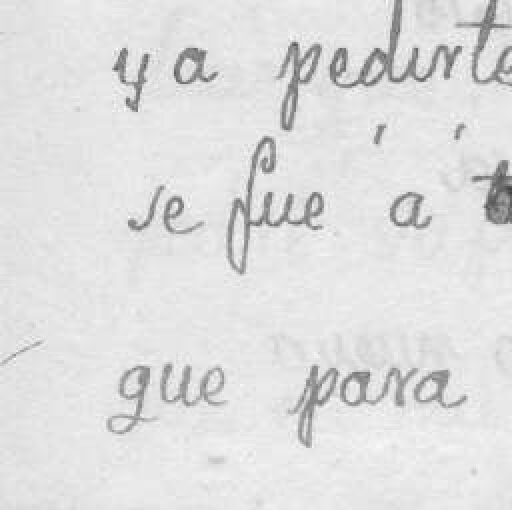 ya pedirte
se fue á
que para